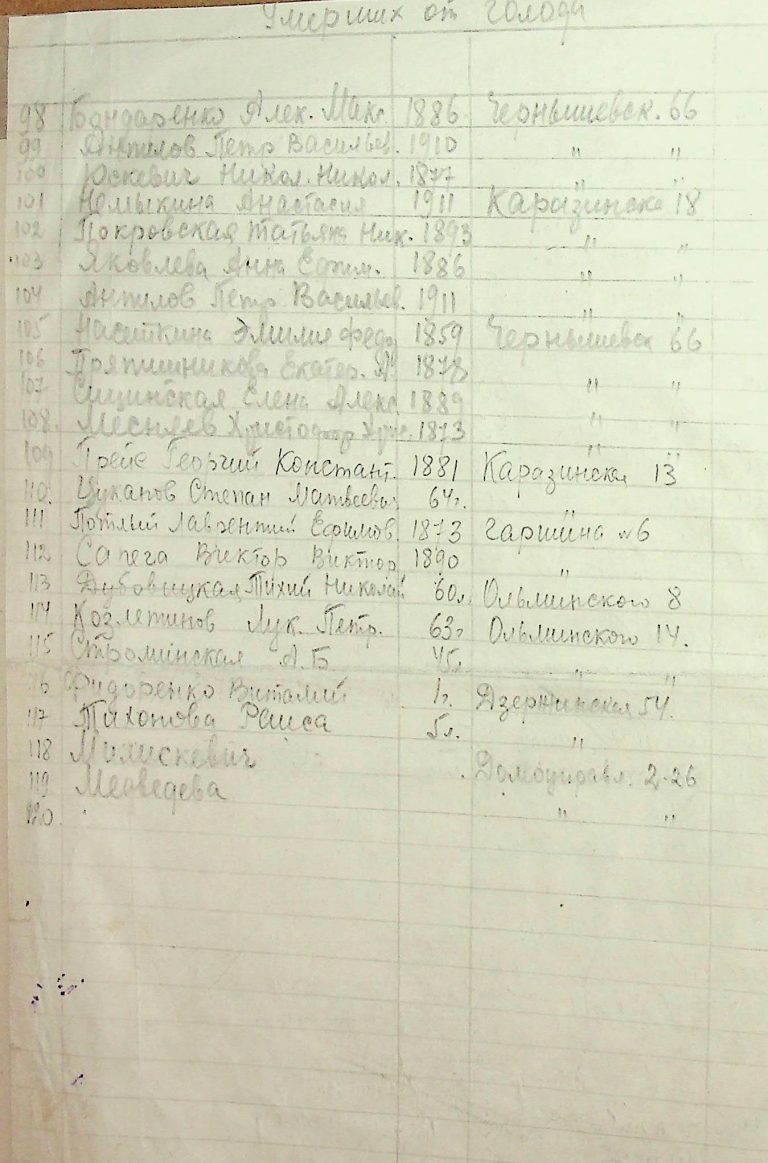 Умерших от голода
98 Бондаренко Алек. Мак. 1886 Чернышевск. 66
99 Антилов Петр Васильев. 1910 " "
100 Юскевич Никол. Никол. 1877 " "
101 Немыкина Анастасия 1911 Каразинска 18
102 Покровская Татьяна Ник. 1893 " "
103 Яковлева Анна Ефим. 1886 " "
104 Антилов Петр Васильев. 1911 " "
105 Наситкина Эмилия Федо 1859 Чернышевск 66
106 Пряпишникова Екатер. 1878
107 Сицинская Елена Алекс 1889 " "
108. Месняев Христофор Хрис. 1873 " "
109 Прейс Георгий Констант. 1881 Каразинская 13
110. Цуканов Степан Матвеевич 64г.
111 Потлый Лаврентий Ефимов. 1873 гаршина №6
112 Сапега Виктор Виктор 1890 "
113 Дубовицкая Тихий Николай 60л. Ольминского 8
114 Козлетинов Лук. Петр. 63г Ольминского 14.
115 Строминская А. Б. 45л. " "
116 Фидоренко Виталий 1г. Дзержинская 54.
117 Тихонова Раиса 5л. "
118 Михискевич Домоуправл. 2-26
119 Медведева " "
120.